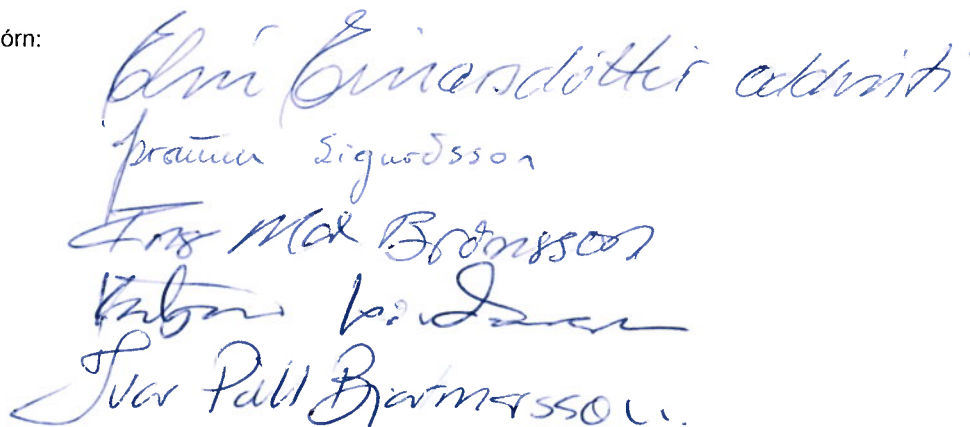 órn:
Elín Einarsdóttir oddviti
Þráinn Sigurðsson
Ingi Már Björnsson
Ivar Páll Bjartmarsson